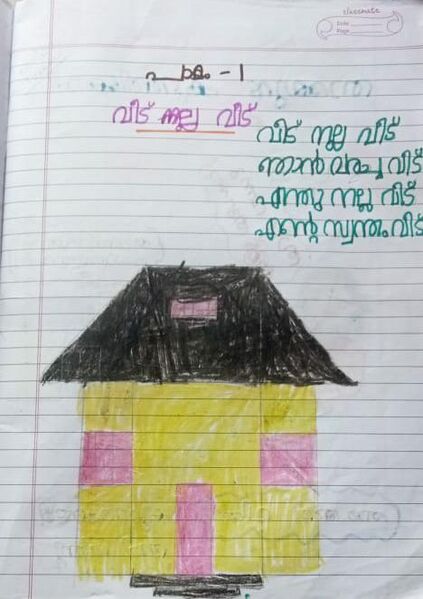 classmate
Date
Page
പാഠം - 1
വീട് നല്ല വീട്
വീട് നല്ല വീട്
ഞാൻ വരച്ച വീട്
എന്തു നല്ല വീട്
എന്റെ സ്വന്തം വീട്